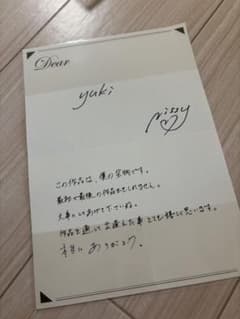 Dear
yuki
Nissy
この作品は、僕の宝物です。
最初で最後の作品かもしれません。
大事にしてあげて下さいね。
作品を通して出逢えた事とても嬉しく思います。
本当にありがとう。